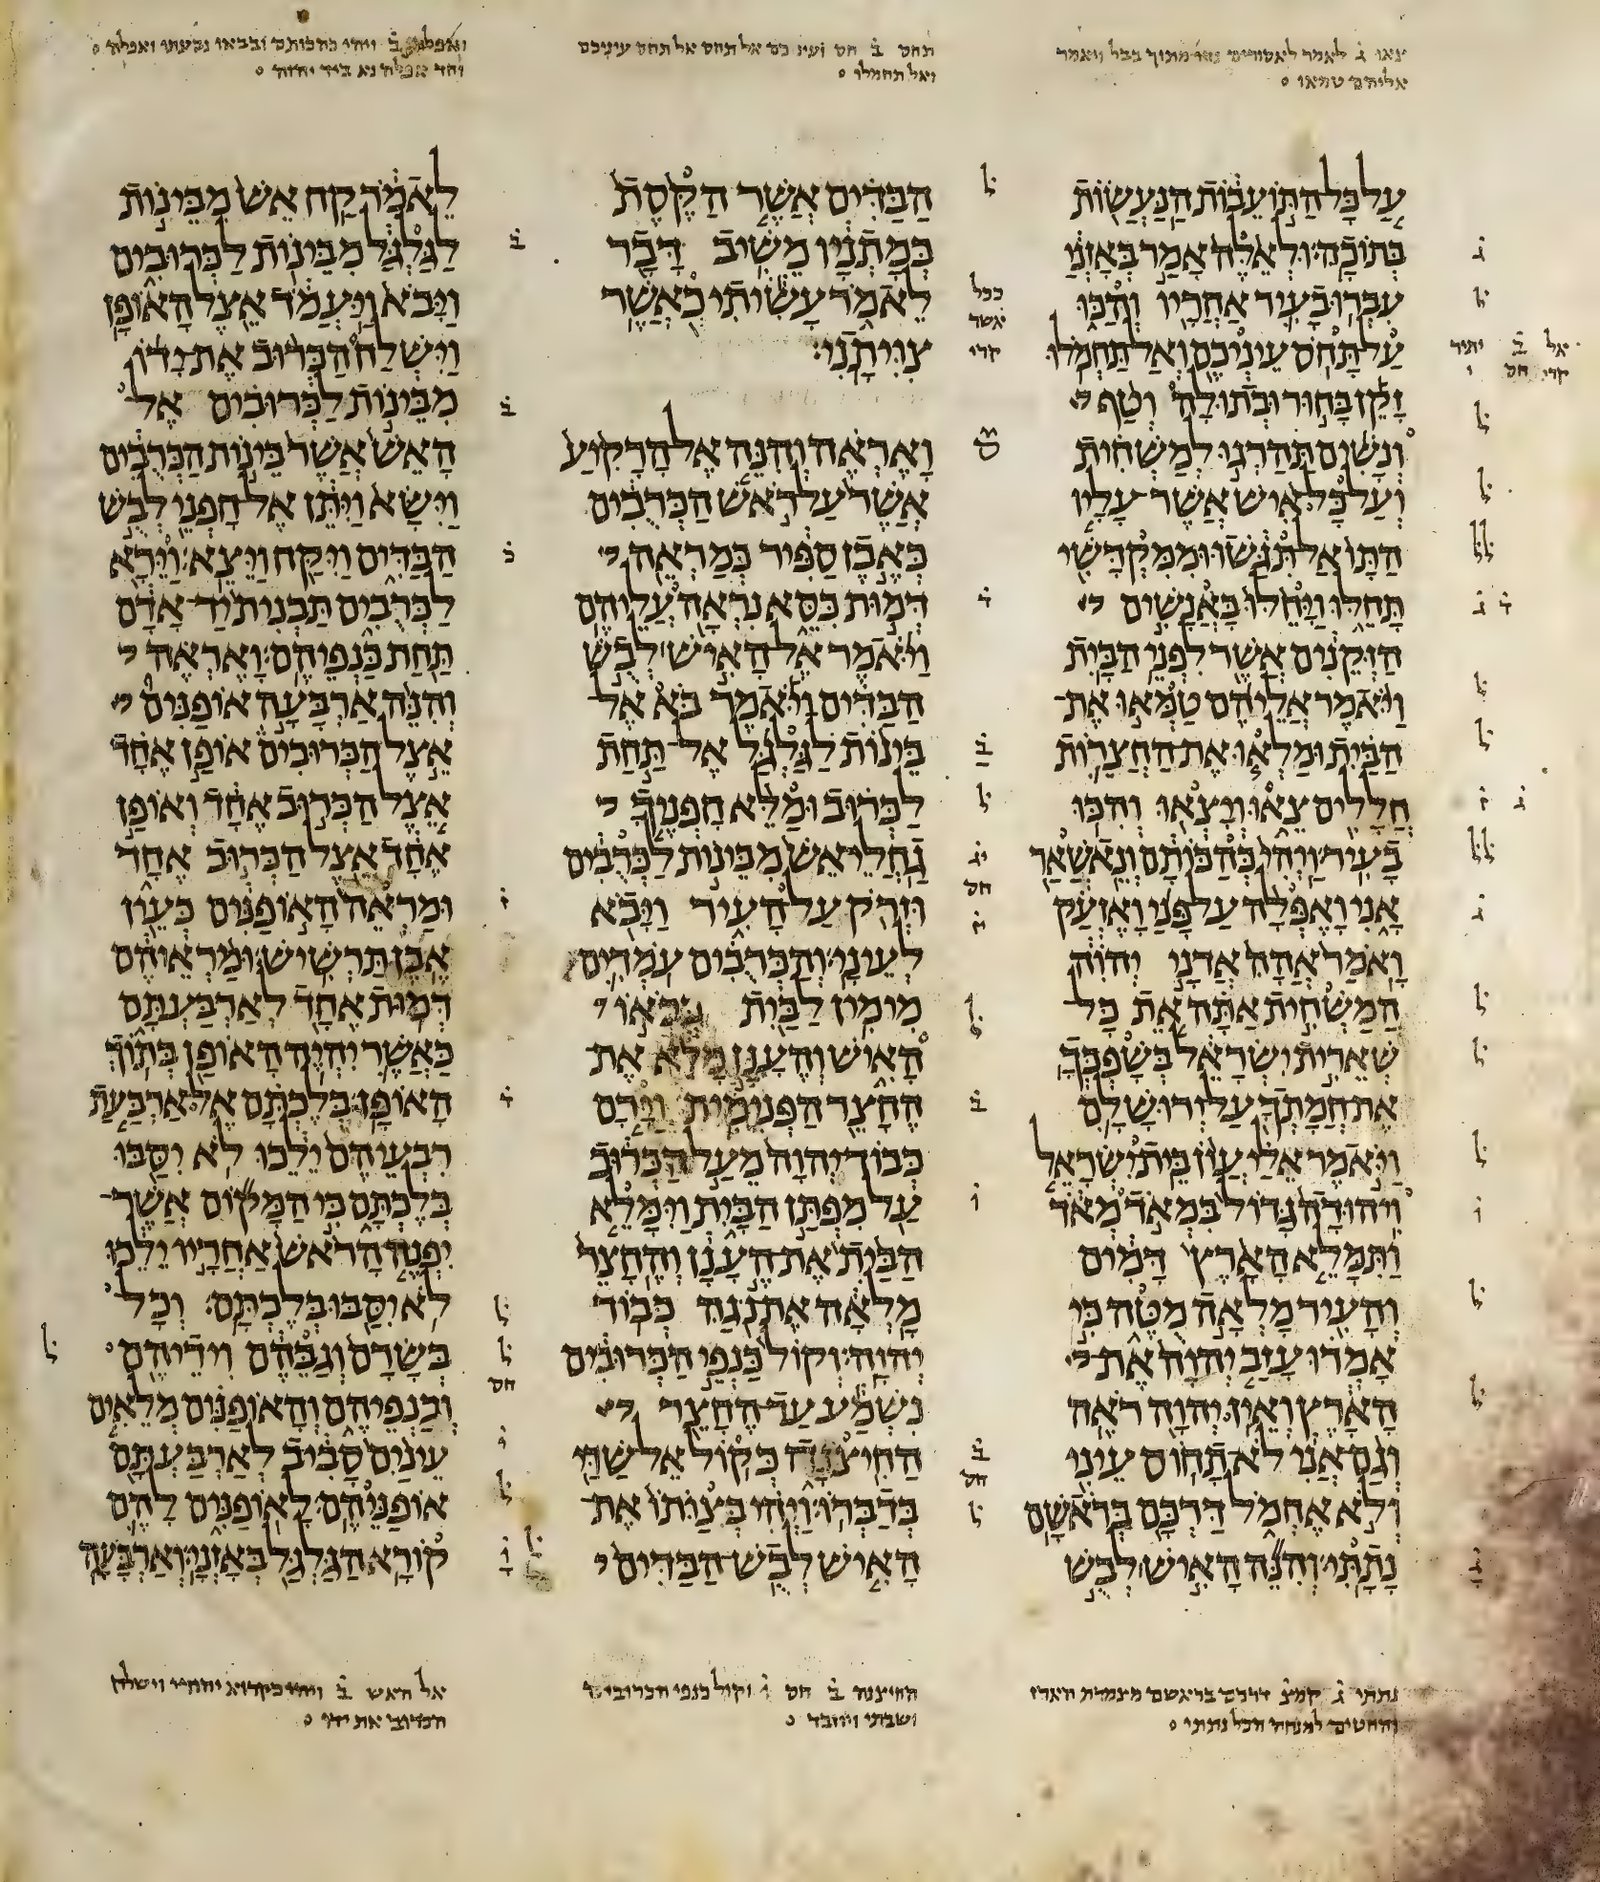 צאו ג לאמר לאסורים צאו מתוך בבל ויאמר
אליהם טמאו
תחס ב חס ועינכם אל תחס אל תחס עיניכם
ואל תחמלו
ואפלה ב ויהי כהכותם ובבאו נבעתי ואפלה
וחד אפלה נא ביד יהוה
עַל כָּל הַתּוֹעֵבוֹת הַנַּעֲשׂוֹת
בְּתוֹכָהּ׃ וּלְאֵלֶּה אָמַר בְּאָזְנַי
עִבְרוּ בָעִיר אַחֲרָיו וְהַכּוּ
עַל תָּחֹס עֵינֵיכֶם וְאַל תַּחְמֹלוּ׃
זָקֵן בָּחוּר וּבְתוּלָה וְטַף
וְנָשִׁים תַּהַרְגוּ לְמַשְׁחִית
וְעַל כָּל אִישׁ אֲשֶׁר עָלָיו
הַתָּו אַל תִּגַּשׁוּ וּמִמִּקְדָּשִׁי
תָּחֵלּוּ וַיָּחֵלּוּ בָּאֲנָשִׁים
הַזְּקֵנִים אֲשֶׁר לִפְנֵי הַבָּיִת׃
וַיֹּאמֶר אֲלֵיהֶם טַמְּאוּ אֶת־
הַבַּיִת וּמַלְאוּ אֶת הַחֲצֵרוֹת
חֲלָלִים צֵאוּ וְיָצְאוּ וְהִכּוּ
בָעִיר׃ וַיְהִי כְּהַכּוֹתָם וְנֵאשֲׁאַר
אָנִי וָאֶפְּלָה עַל פָּנַי וָאֶזְעַק
וָאֹמַר אֲהָהּ אֲדֹנָי יְהוִה
הֲמַשְׁחִית אַתָּה אֵת כָּל־
שְׁאֵרִית יִשְׂרָאֵל בְּשָׁפְכְּךָ
אֶת חֲמָתְךָ עַל יְרוּשָׁלִָם׃
וַיֹּאמֶר אֵלַי עֲוֺן בֵּית יִשְׂרָאֵל
וִיהוּדָה גָּדוֹל בִּמְאֹד מְאֹד
וַתִּמָּלֵא הָאָרֶץ דָּמִים
וְהָעִיר מָלְאָה מֻטֶּה כִּי
אָמְרוּ עָזַב יְהוָה אֶת־
הָאָרֶץ וְאֵין יְהוָה רֹאֶה׃
וְגַם אֲנִי לֹא תָחוֹס עֵינִי
וְלֹא אֶחְמֹל דַּרְכָּם בְּרֹאשָׁם
נָתָתִּי׃ וְהִנֵּה הָאִישׁ לְבֻשׁ
הַבַּדִּים אֲשֶׁר הַקֶּסֶת
בְּמָתְנָיו מֵשִׁיב דָּבָר
לֵאמֹר עָשִׂיתִי כְּאֲשֶׁר
צִוִּיתָנִי׃
וָאֶרְאֶה וְהִנֵּה אֶל הָרָקִיעַ
אֲשֶׁר עַל רֹאשׁ הַכְּרֻבִים
כְּאֶבֶן סַפִּיר כְּמַרְאֵה
דְּמוּת כִּסֵּא נִרְאָה עֲלֵיהֶם׃
וַיֹּאמֶר אֶל הָאִישׁ לְבֻשׁ
הַבַּדִּים וַיֹּאמֶר בֹּא אֶל־
בֵּינוֹת לַגַּלְגַּל אֶל־תַּחַת
לַכְּרוּב וּמַלֵּא חָפְנֶיךָ
גַחֲלֵי אֵשׁ מִבֵּינוֹת לַכְּרֻבִים
וּזְרֹק עַל הָעִיר וַיָּבֹא
לְעֵינָי׃ וְהַכְּרֻבִים עֹמְדִים
מִימִין לַבַּיִת בְּבֹאוֹ
הָאִישׁ וְהֶעָנָן מָלֵא אֶת־
הֶחָצֵר הַפְּנִימִית׃ וַיָּרָם
כְּבוֹד יְהוָה מֵעַל הַכְּרוּב
עַל מִפְתַּן הַבָּיִת וַיִּמָּלֵא
הַבַּיִת אֶת הֶעָנָן וְהֶחָצֵר
מָלְאָה אֶת נֹגַהּ כְּבוֹד
יְהוָה׃ וְקוֹל כַּנְפֵי הַכְּרוּבִים
נִשְׁמַע עַד הֶחָצֵר
הַחִיצֹנָה כְּקוֹל אֵל שַׁדַּי
בְּדַבְּרוֹ׃ וַיְהִי בְּצַוֺּתוֹ אֶת־
הָאִישׁ לְבֻשׁ הַבַּדִּים
לֵאמֹר קַח אֵשׁ מִבֵּינוֹת
לַגַּלְגַּל מִבֵּינוֹת לַכְּרוּבִים
וַיָּבֹא וַיַּעֲמֹד אֵצֶל הָאוֹפָן׃
וַיִּשְׁלַח הַכְּרוּב אֶת־יָדוֹ
מִבֵּינוֹת לַכְּרוּבִים אֶל־
הָאֵשׁ אֲשֶׁר בֵּינוֹת הַכְּרֻבִים
וַיִּשָּׂא וַיִּתֵּן אֶל חָפְנֵי לְבֻשׁ
הַבַּדִּים וַיִּקַּח וַיֵּצֵא׃ וַיֵּרָא
לַכְּרֻבִים תַּבְנִית יַד־אָדָם
תַּחַת כַּנְפֵיהֶם׃ וָאֶרְאֶה
וְהִנֵּה אַרְבָּעָה אוֹפַנִּים
אֵצֶל הַכְּרוּבִים אוֹפַן אֶחָד
אֵצֶל הַכְּרוּב אֶחָד וְאוֹפַן
אֶחָד אֵצֶל הַכְּרוּב אֶחָד
וּמַרְאֵה הָאוֹפַנִּים כְּעֵין
אֶבֶן תַּרְשִׁישׁ׃ וּמַרְאֵיהֶם
דְּמוּת אֶחָד לְאַרְבַּעְתָּם
כַּאֲשֶׁר יִהְיֶה הָאוֹפַן בְּתוֹךְ
הָאוֹפָן׃ בְּלֶכְתָּם אֶל אַרְבַּעַת
רִבְעֵיהֶם יֵלֵכוּ לֹא יִסַּבּוּ
בְּלֶכְתָּם כִּי הַמָּקוֹם אֲשֶׁר־
יִפְנֶה הָרֹאשׁ אַחֲרָיו יֵלֵכוּ
לֹא יִסַּבּוּ בְּלֶכְתָּם׃ וְכָל־
בְּשָׂרָם וְגַבֵּהֶם וִידֵיהֶם
וְכַנְפֵיהֶם וְהָאוֹפַנִּים מְלֵאִים
עֵינַיִם סָבִיב לְאַרְבַּעְתָּם
אוֹפַנֵּיהֶם׃ לָאוֹפַנִּים לָהֶם
קוֹרָא הַגַּלְגַּל בְּאָזְנָי׃ וְאַרְבָּעָה
נתתי ג קמצ דרכם בראשם מצמרת הארז
והחטים למנחה הכל נתתי
החיצנה ב חס וקול כנפי הכרובים
ושבתי ויוזבד
אל האש ב ויהי כקרוא יהודי וישלח
הכרוב את ידו